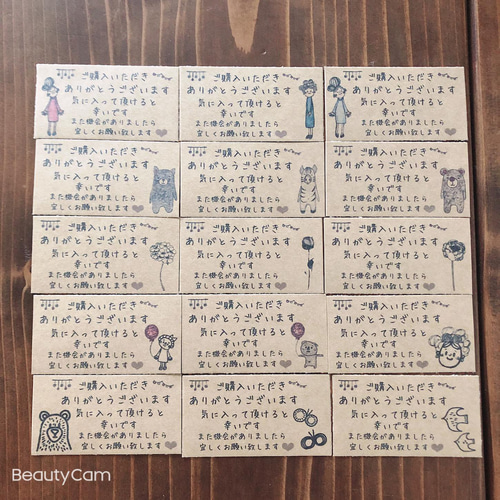 ご購入いただき ご購入いただき ご購入いただき
ありがとうございます ありがとうございます ありがとうございます
気に入って頂けると 気に入って頂けると 気に入って頂けると
幸いです 幸いです 幸いです
また機会がありましたら また機会がありましたら また機会がありましたら
宜しくお願い致します 宜しくお願い致します 宜しくお願い致します
ご購入いただき ご購入いただき ご購入いただき
ありがとうございます ありがとうございます ありがとうございます
気に入って頂けると 気に入って頂けると 気に入って頂けると
幸いです 幸いです 幸いです
また機会がありましたら また機会がありましたら また機会がありましたら
宜しくお願い致します 宜しくお願い致します 宜しくお願い致します
ご購入いただき ご購入いただき ご購入いただき
ありがとうございます ありがとうございます ありがとうございます
気に入って頂けると 気に入って頂けると 気に入って頂けると
幸いです 幸いです 幸いです
また機会がありましたら また機会がありましたら また機会がありましたら
宜しくお願い致します 宜しくお願い致します 宜しくお願い致します
ご購入いただき ご購入いただき ご購入いただき
ありがとうございます ありがとうございます ありがとうございます
気に入って頂けると 気に入って頂けると 気に入って頂けると
幸いです 幸いです 幸いです
また機会がありましたら また機会がありましたら また機会がありましたら
宜しくお願い致します 宜しくお願い致します 宜しくお願い致します
ご購入いただき ご購入いただき ご購入いただき
ありがとうございます ありがとうございます ありがとうございます
気に入って頂けると 気に入って頂けると 気に入って頂けると
幸いです 幸いです 幸いです
また機会がありましたら また機会がありましたら また機会がありましたら
宜しくお願い致します 宜しくお願い致します 宜しくお願い致します
BeautyCam